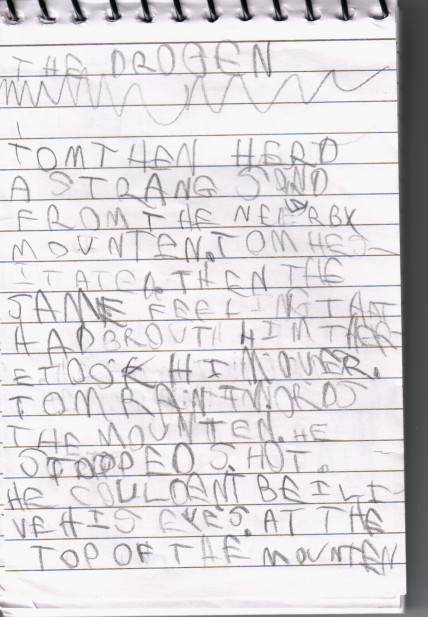 THE DROGEN
TOM THEN HERD
A STRANG SOUND
FROM THE NEARBY
MOUNTEN. TOM HES
ITATED. THEN THE
SAME FEELING TAT
HAD BROUTH HIM THER
E TOOK HIM OVER.
TOM RAN TWORDS
THE MOUNTEN. HE
STOPPED SHOT.
HE COULDENT BEILI
VE HIS EYES. AT THE
TOP OF THE MOUNTEN